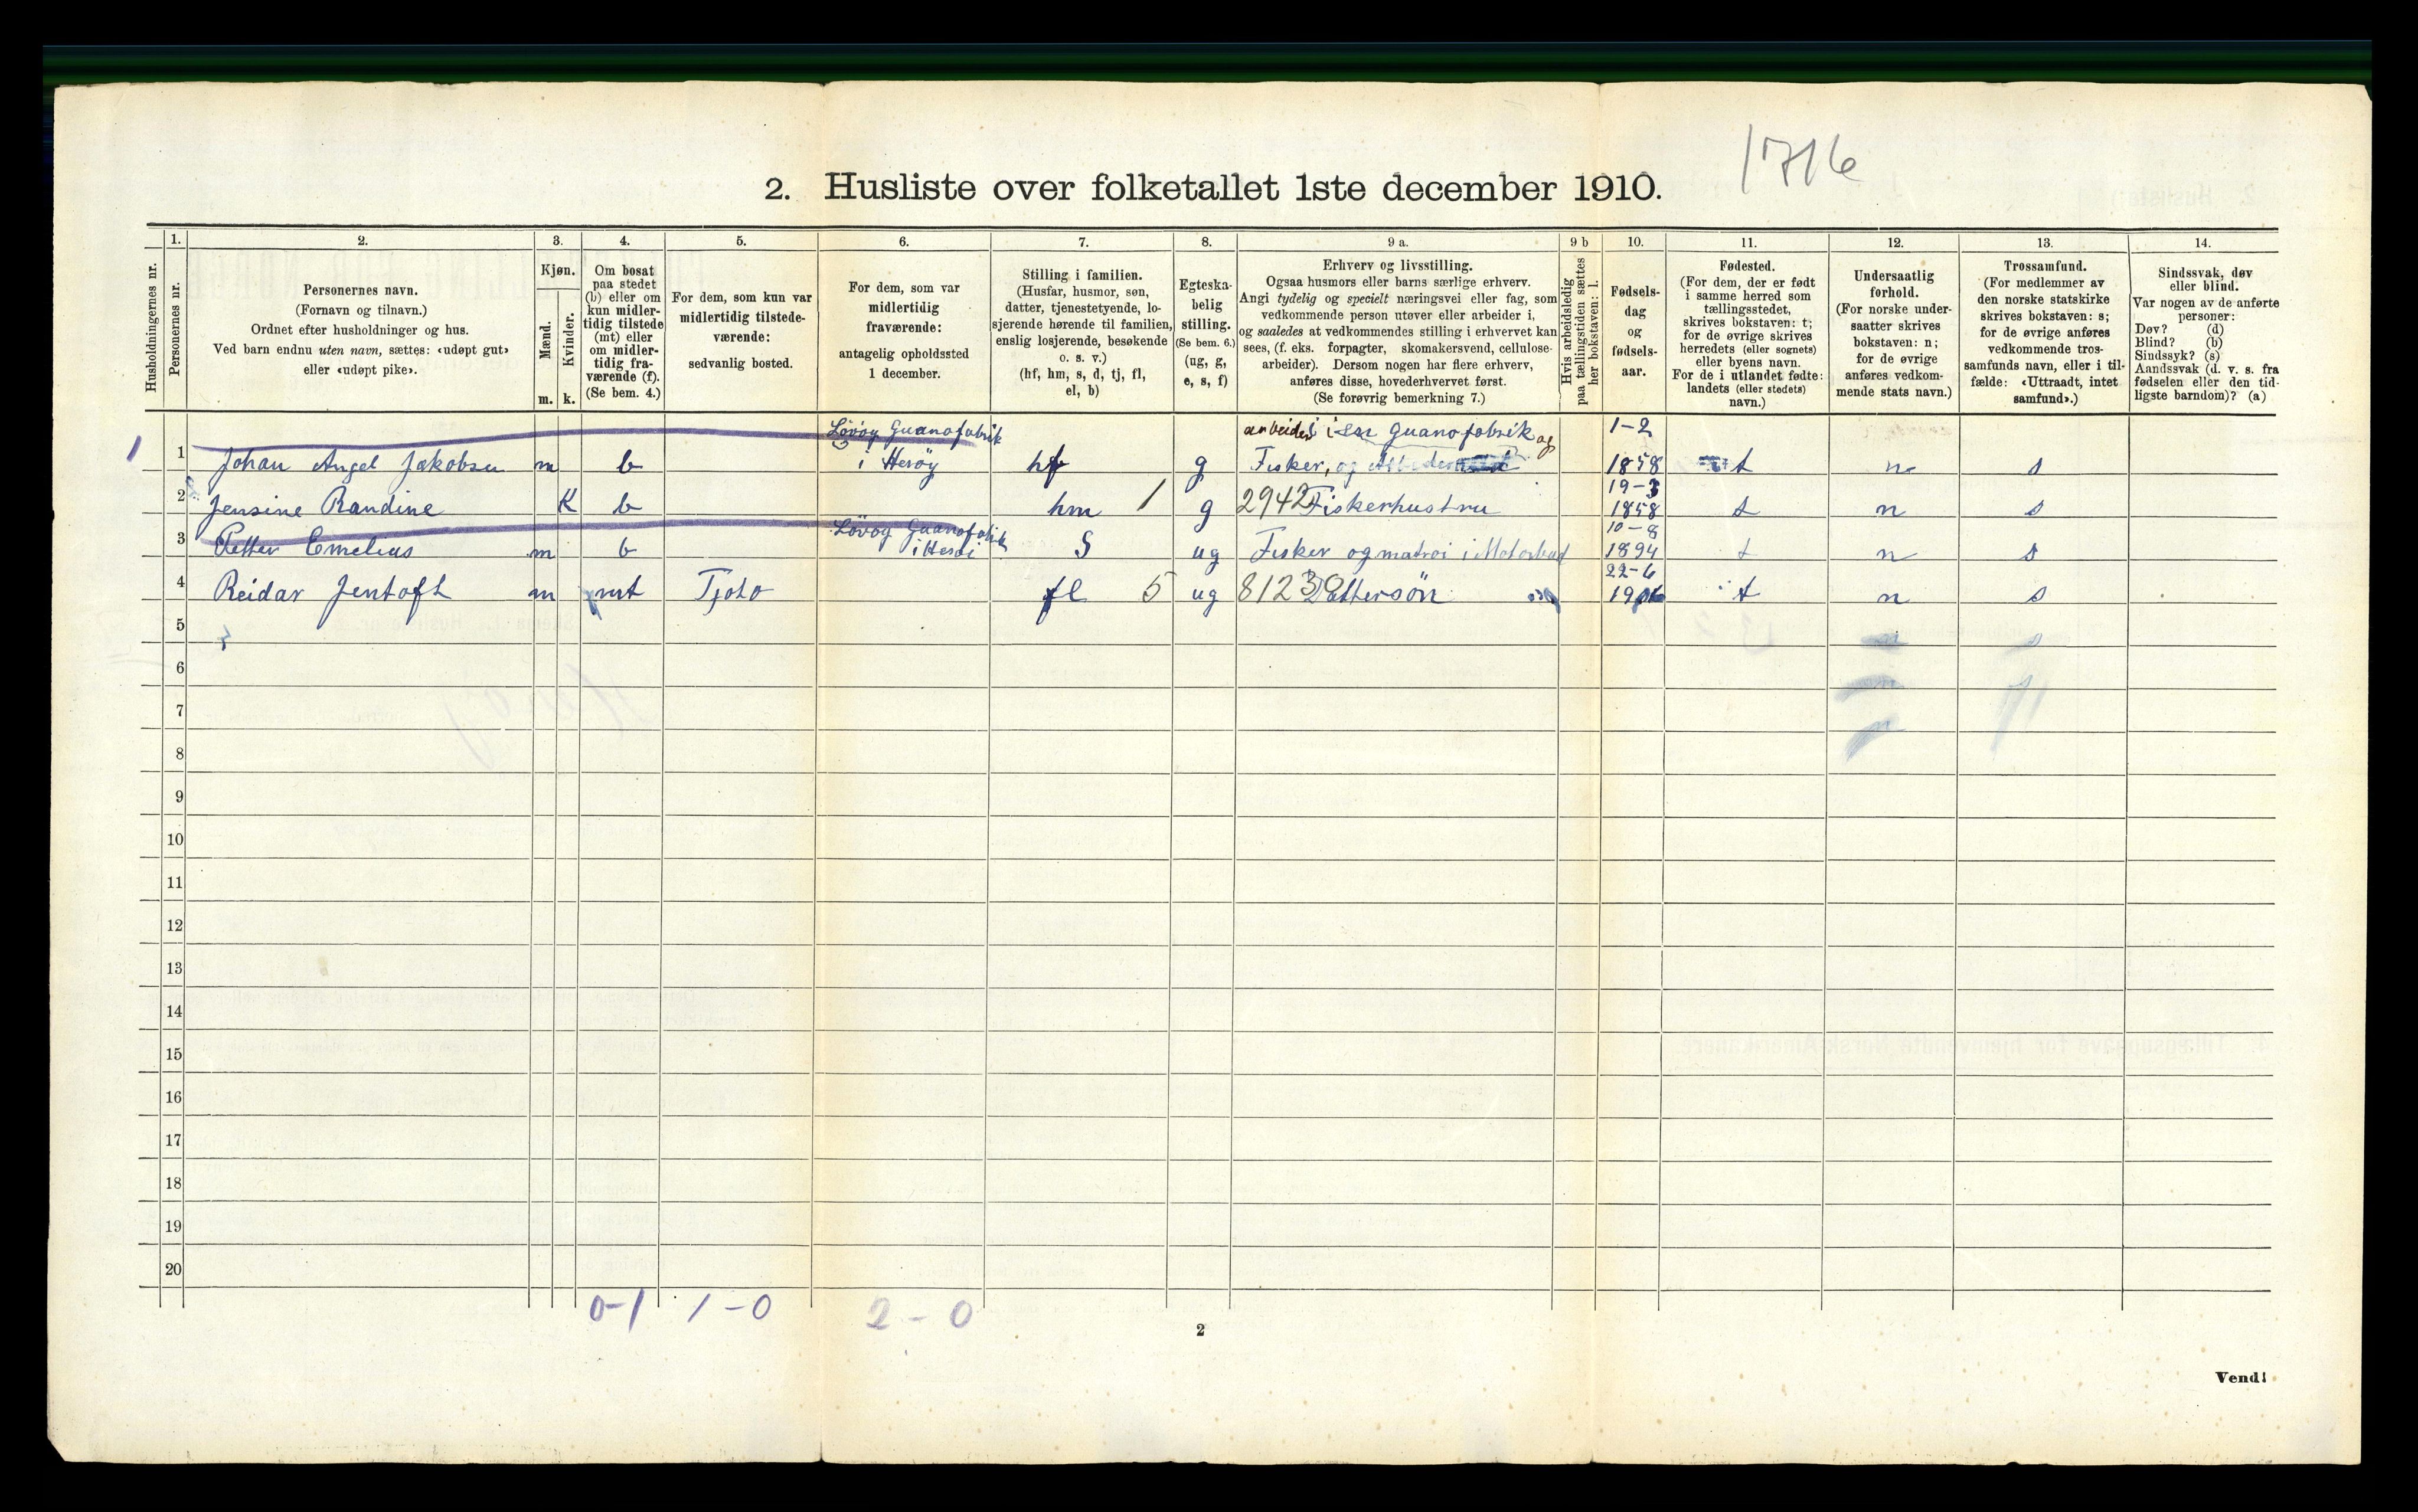 1716
2. Husliste over folketallet 1ste december 1910.
1. 2. 3. 4. 5. 6. 7. 8. 9 a. 9 b 10. 11. 12. 13. 14.
Husholdningernes nr.
Personernes nr.
Personernes navn.
(Fornavn og tilnavn.)
Ordnet efter husholdninger og hus.
Ved barn endnu uten navn, sættes: «udøpt gut»
eller «udøpt pike».
Kjøn.
Mænd.
Kvinder.
m. k.
Om bosat
paa stedet
(b) eller om
kun midler-
tidig tilstede
(mt) eller
om midler-
tidig fra-
værende (f).
(Se bem. 4.)
For dem, som kun var
midlertidig tilstede-
værende:
sedvanlig bosted.
For dem, som var
midlertidig
fraværende:
antagelig opholdssted
1 december.
Stilling i familien.
(Husfar, husmor, søn,
datter, tjenestetyende, lo-
sjerende hørende til familien,
enslig losjerende, besøkende
o. s. v.)
(hf, hm, s, d, tj, fl,
el, b)
Egteska-
belig
stilling.
(Se bem. 6.)
(ug, g,
e, s, f)
Erhverv og livsstilling.
Ogsaa husmors eller barns særlige erhverv.
Angi tydelig og specielt næringsvei eller fag, som
vedkommende person utøver eller arbeider i,
og saaledes at vedkommendes stilling i erhvervet kan
sees, (f. eks. forpagter, skomakersvend, cellulose-
arbeider). Dersom nogen har flere erhverv,
anføres disse, hovederhvervet først.
(Se forøvrig bemerkning 7.)
Hvis arbeidsledig
paa tællingstiden sættes
her bokstaven: l.
Fødsels-
dag
og
fødsels-
aar.
Fødested.
(For dem, der er født
i samme herred som
tællingsstedet,
skrives bokstaven: t;
for de øvrige skrives
herredets (eller sognets)
eller byens navn.
For de i utlandet fødte:
landets (eller stedets)
navn.)
Undersaatlig
forhold.
(For norske under-
saatter skrives
bokstaven: n;
for de øvrige
anføres vedkom-
mende stats navn.)
Trossamfund.
(For medlemmer av
den norske statskirke
skrives bokstaven: s;
for de øvrige anføres
vedkommende tros-
samfunds navn, eller i til-
fælde: «Uttraadt, intet
samfund».)
Sindssvak, døv
eller blind.
Var nogen av de anførte
personer:
Døv? (d)
Blind? (b)
Sindssyk? (s)
Aandssvak (d. v. s. fra
fødselen eller den tid-
ligste barndom)? (a)
Løvøy Guanofabrik arbeider i guanofabrik og 1-2
1 1 Johan Angel Jakobsen m b i Herøy hf g Fisker, og 1858 t n s
19-3
2 Jensine Randine K b hm 1 g 2942 Fiskerhustru 1858 t n s
Løvøy Guanofabrik 10-8
3 Petter Emelius m b i Herøi S ug Fisker og matros i Motorbaad 1894 t n s
22-6
4 Reidar Jentoft m mt Tjøtø fl 5 ug 8123 Dattersön t n s
5 s
6
7
8
9
10
11
12
13
14
15
16
17
18
19
20
0-1 1-0 2-0
2
Vend!